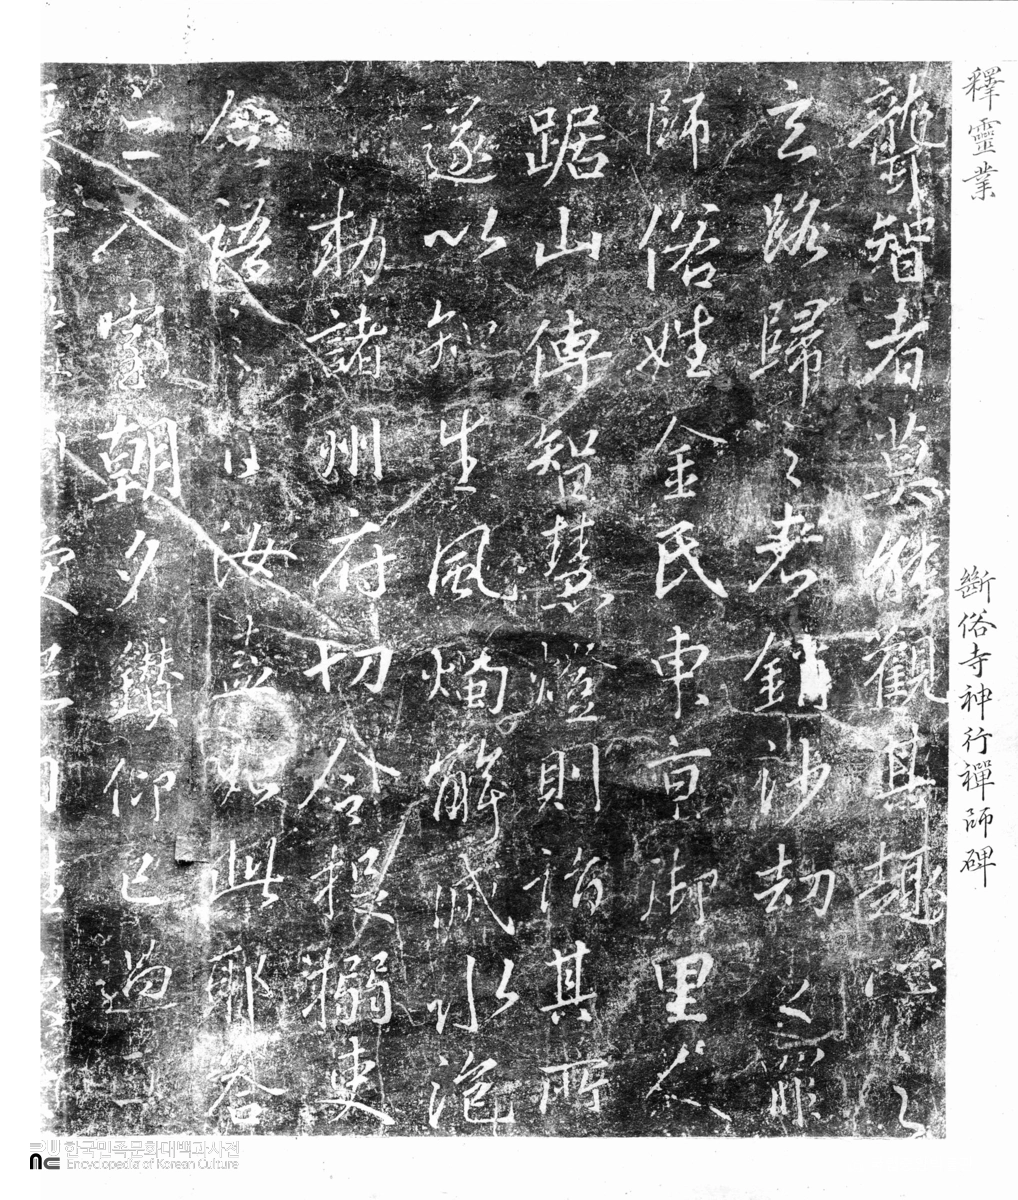 釋靈業
斷俗寺神行禪師碑
智者莫能觀其趣心〻
玄路歸〻者銷沙劫之罪
師俗姓金氏東京御里人
踞山傳智慧燈則詣其所
遂以知生風燭解滅水泡
勅諸州府切令捉搦吏
語〻曰汝盍如此耶答
入室朝夕鑽仰已過三
한국민족문화대백과사전
Encyclopedia of Korean Culture